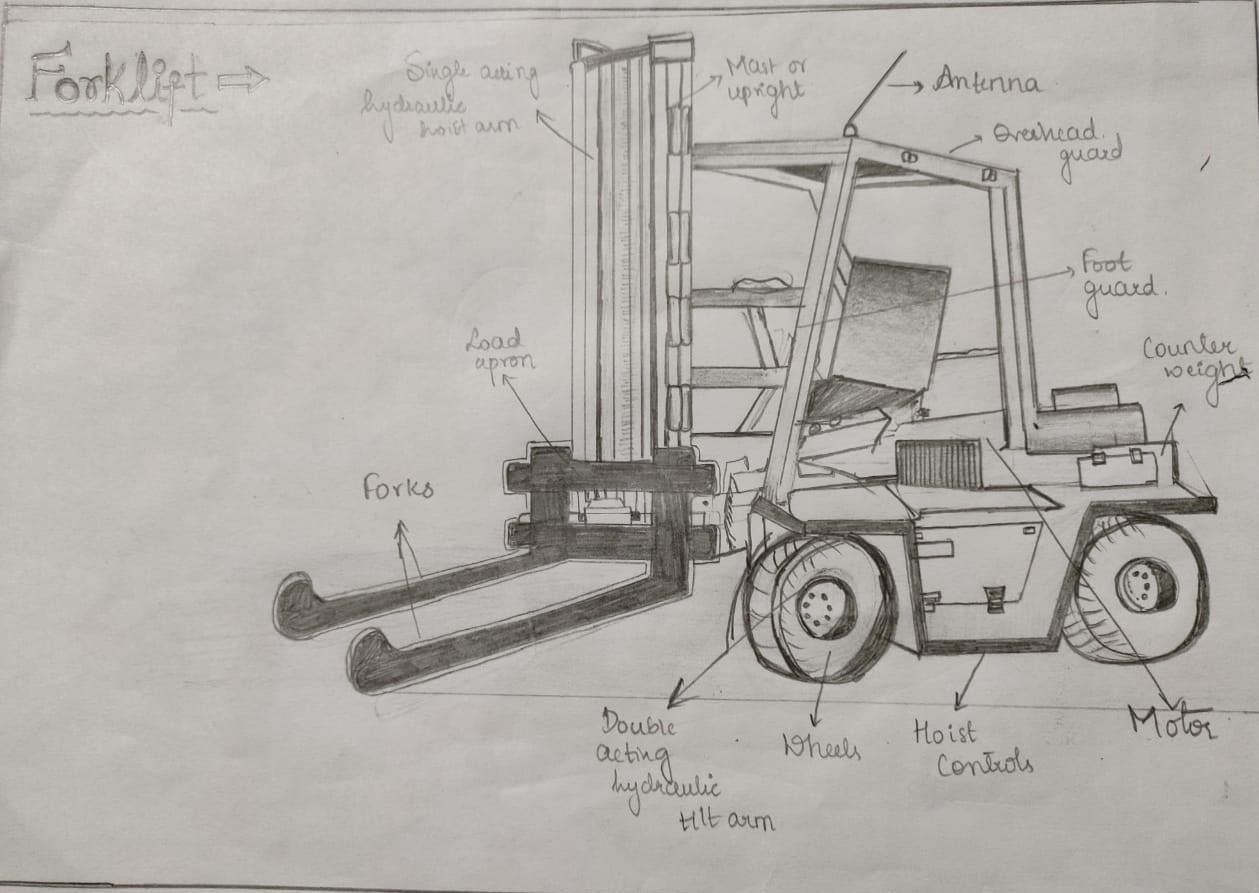 Forklift ⇒
Single acting
hydraulic
hoist arm
Mast or
upright
Antenna
Overhead
guard
Foot
guard.
Counter
weight
Load
apron
Forks
Double
acting
hydraulic
tilt arm
Wheels
Hoist
Controls
Motor